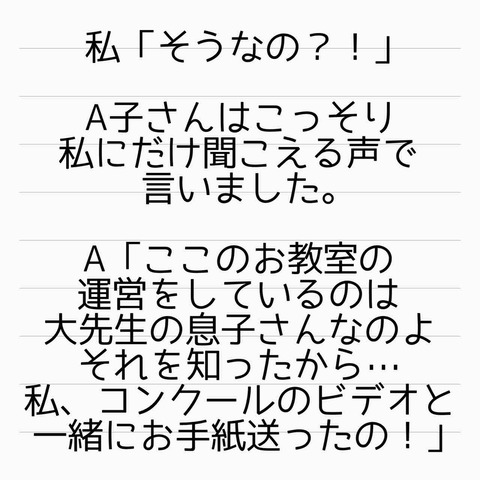 私「そうなの？！」
A子さんはこっそり
私にだけ聞こえる声で
言いました。
A「ここのお教室の
運営をしているのは
大先生の息子さんなのよ
それを知ったから…
私、コンクールのビデオと
一緒にお手紙送ったの！」